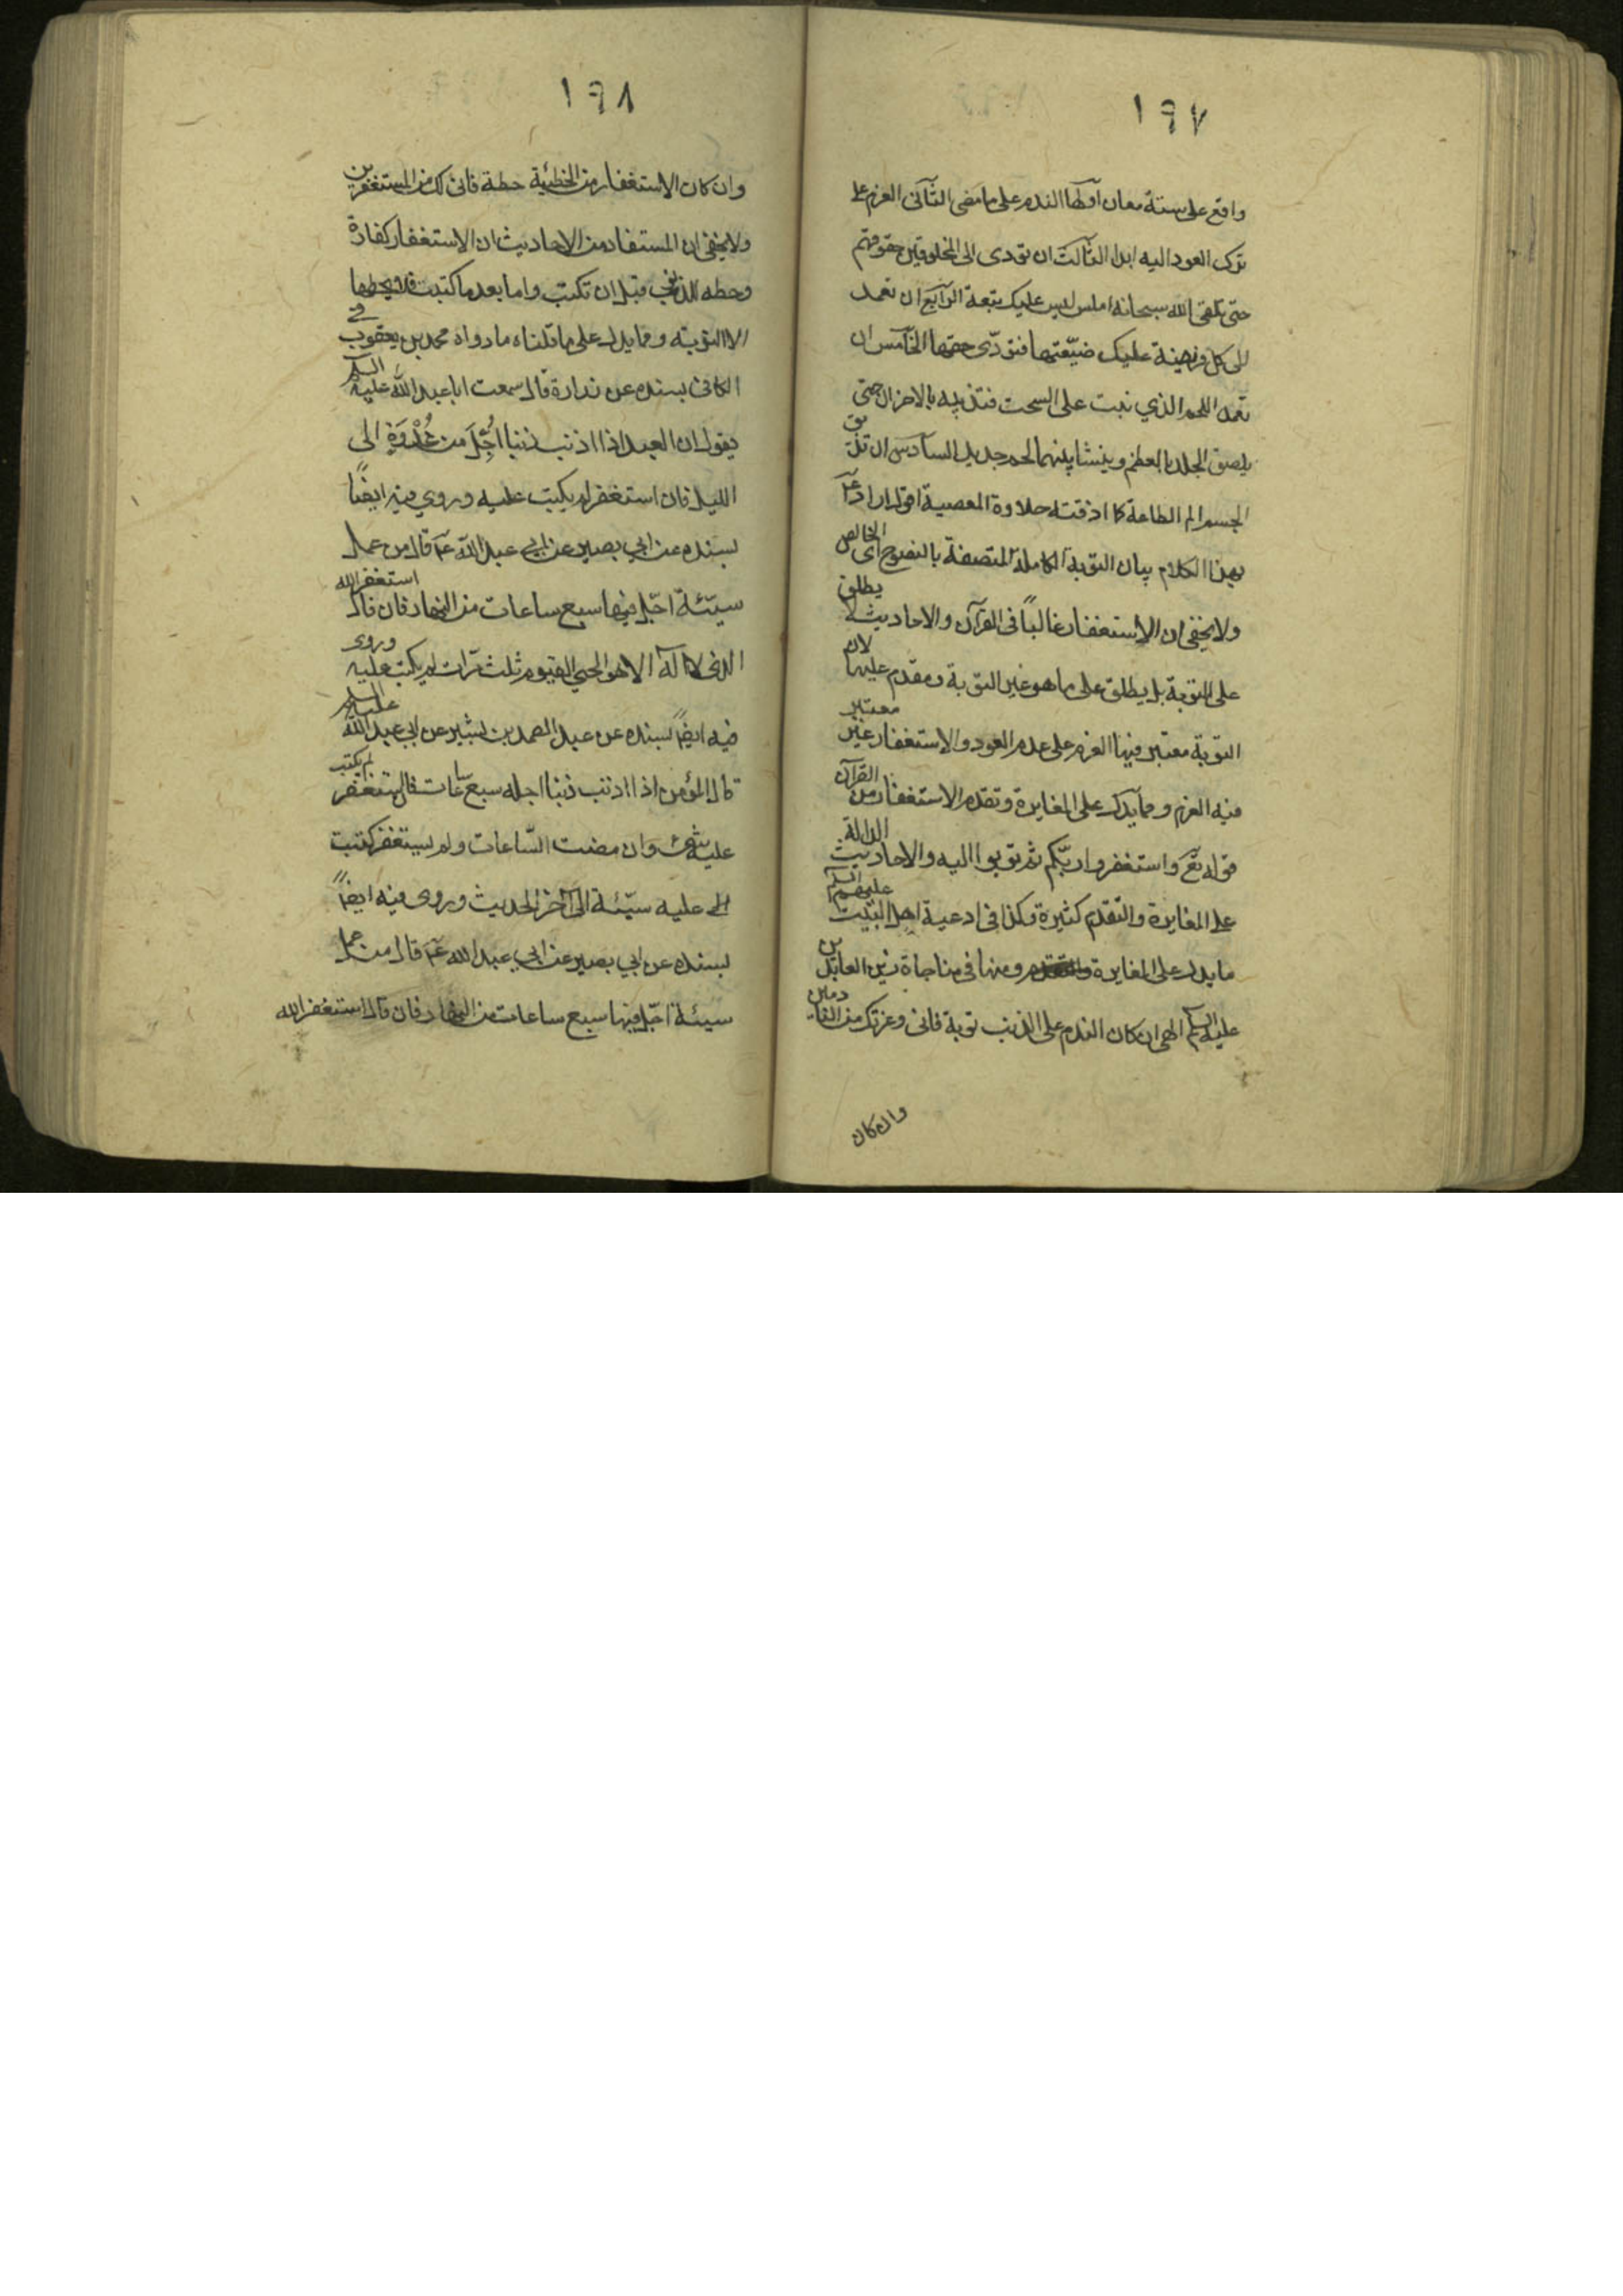 ١٩٧
واقع على ستة معان اوّلها الندم على ما مضى الثّانى العزم على
ترك العود اليه ابدا الثّالث ان تؤدى الى المخلوقين حقوقهم
حتى تلقى الله سبحانه املس ليس عليك تبعة الرّابع ان تعمد
الى كل فريضة عليك ضيّعتها فتؤدّى حقها الخآمس ان
تعمد اللحم الذي نبت على السحت فتذيبه بالاحزان حتى
يلصق الجلد بالعظم وينشا بينهما لحم جديد السّادس ان تذيق
الجسم الم الطاعة كما اذقته حلاوة المعصية اقول اراد عم
بهذا الكلام بيان التوبة الكاملة المتصفة بالنصوح اى الخالص
ولا يخفى ان الاستغفار غالبًا فى القرآن والاحاديث لا يطلق
على التوبة بل يطلق على ما هو غير التوبة ومقدم عليها لان
التوبة معتبر فيها العزم على عدم العود والاستغفار غير معتبر
فيه العزم ومما يدل على المغايرة وتقدم الاستغفار من القرآن
قوله تع واستغفروا ربّكم ثم توبوا اليه والاحاديث الدالة
على المغايرة والتقدم كثيرة وكذا فى ادعية اهل البيت عليهم السلم
ما يدل على المغايرة ومنها فى مناجاة زين العابدين
عليه السلم الهى ان كان الندم على الذنب توبة فانى وعزتك من النادمين
وان كان
١٩٨
وان كان الاستغفار من الخطيئة حطة فانى لك من المستغفرين
ولا يخفى ان المستفاد من الاحاديث ان الاستغفار كفارة
وحطه الذنب قبل ان تكتب واما بعد ما كتبت فلا يحطها
الا التوبة ومما يدل على ما قلناه ما رواه محمد بن يعقوب فى
الكافى بسنده عن زرارة قال سمعت ابا عبد الله عليه السلم
يقول ان العبد اذا اذنب ذنبا اُجِّلَ من غُدْوَةٍ الى
الليل فان استغفر لم يكتب عليه وروي فيه ايضًا
بسنده عن ابي بصير عن ابي عبد الله عم قال من عمل
سيّئة اجّل فيها سبع ساعات من النهار فان قال استغفر الله
الذى لا اله الا هو الحي القيوم ثلث مرّات لم يكتب عليه وروى
فيه ايضًا بسنده عن عبد الصمد بن بشير عن ابي عبد الله عليه السلم
قال المؤمن اذا اذنب ذنبا اجله سبع ساعات فان استغفر لم يكتب
عليه شئ وان مضت السّاعات ولم يستغفر كتبت
عليه سيّئة الى آخر الحديث وروى فيه ايضًا
بسنده عن ابي بصير عن ابي عبد الله عم قال من عمل
سيئة اجّل فيها سبع ساعات من النهار فان قال استغفر الله